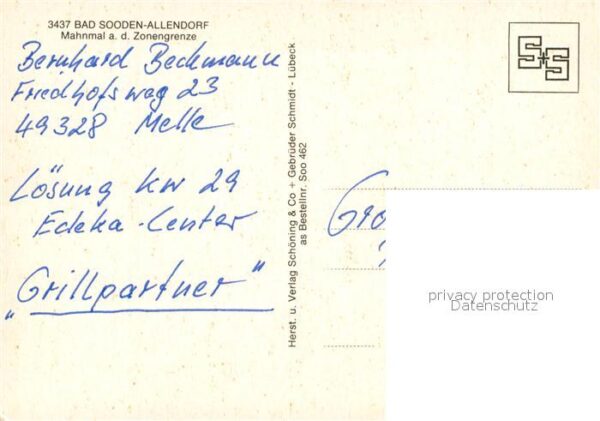 3437 BAD SOODEN-ALLENDORF
Mahnmal a. d. Zonengrenze
Bernhard Beckmann
Friedhofsweg 23
49328 Melle
Lösung KW 29
Edeka-Center
„Grillpartner"
Herst. u. Verlag Schöning & Co + Gebrüder Schmidt · Lübeck
as Bestellnr. Soo 462
S+S
Gro
privacy protection
Datenschutz